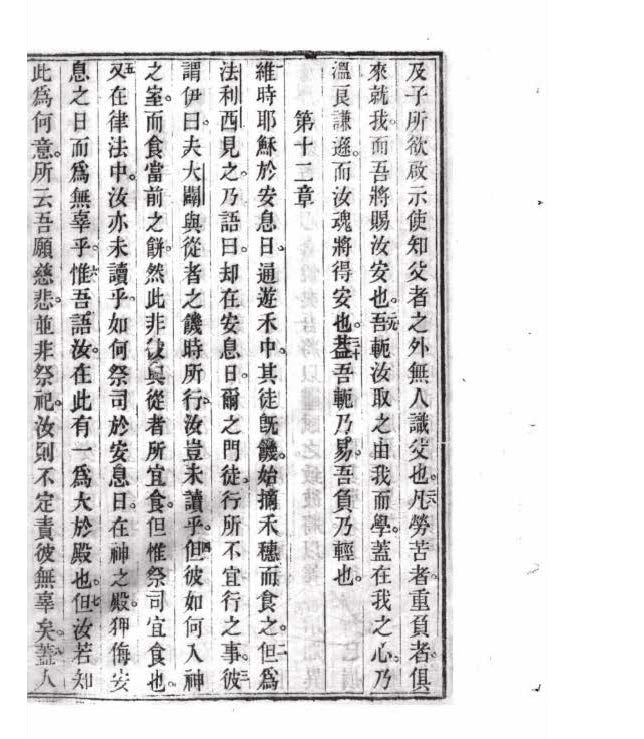 及子所欲啟示使知父者之外無人識父也。凡勞苦者。重負者。俱
來就我。而吾將賜汝安也。吾軛汝取之由我而學。蓋在我之心。乃
溫良謙遜。而汝魂將得安也。蓋吾軛乃易。吾負乃輕也。
第十二章
維時耶穌於安息日。逼遊禾中。其徒既饑。始摘禾穗而食之。但為
法利西見之。乃語曰。却在安息日。爾之門徒。行所不宜行之事。彼
謂伊曰。夫大闢與從者之饑時所行。汝豈未讀乎。但彼如何入神
之室。而食當前之餅。然此非彼與從者所宜食。但惟祭司宜食也。
又在律法中。汝亦未讀乎。如何祭司於安息日。在神之殿。狎侮安
息之日。而為無辜乎。惟吾語汝。在此有一為大於殿也。但汝若知
此為何意。所云吾願慈悲。並非祭祀。汝則不定責彼無辜矣。蓋人